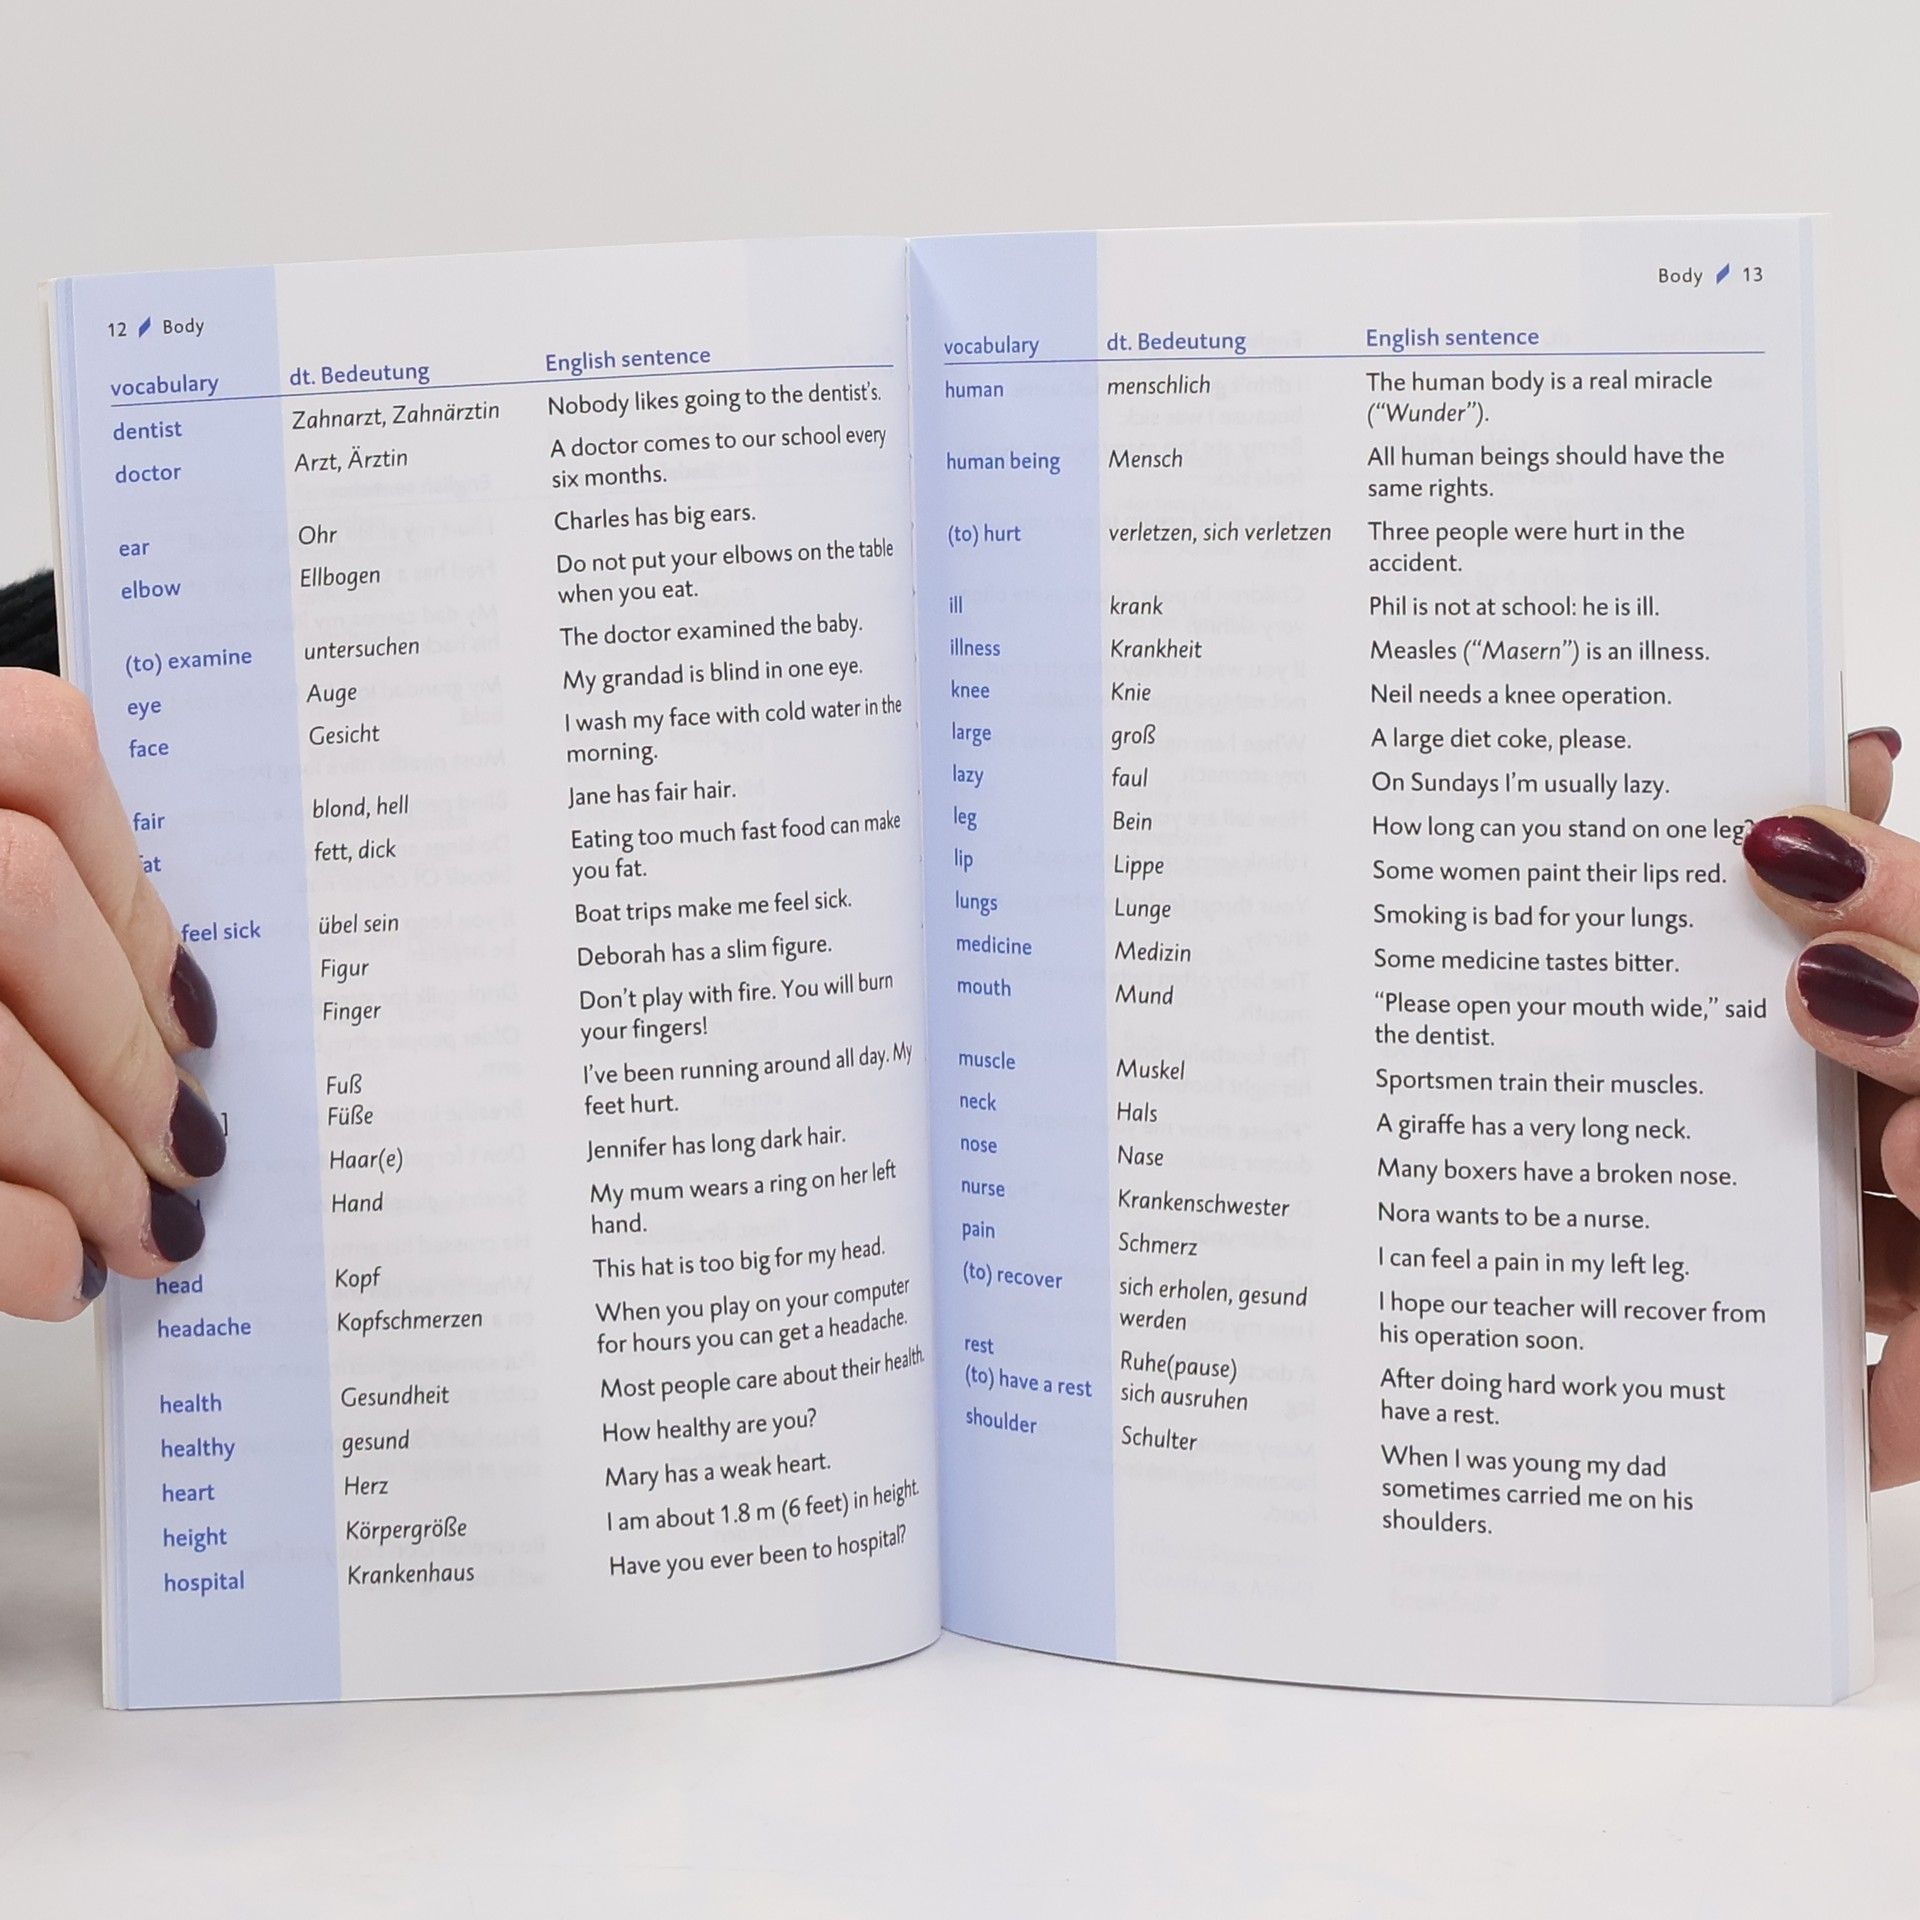 12 Body
vocabulary dt. Bedeutung English sentence
dentist Zahnarzt, Zahnärztin Nobody likes going to the dentist's.
doctor Arzt, Ärztin A doctor comes to our school every
six months.
ear Ohr Charles has big ears.
elbow Ellbogen Do not put your elbows on the table
when you eat.
(to) examine untersuchen The doctor examined the baby.
eye Auge My grandad is blind in one eye.
face Gesicht I wash my face with cold water in the
morning.
fair blond, hell Jane has fair hair.
fett, dick Eating too much fast food can make
you fat.
feel sick übel sein Boat trips make me feel sick.
Figur Deborah has a slim figure.
Finger Don't play with fire. You will burn
your fingers!
Fuß I've been running around all day. My
Füße feet hurt.
Haar(e) Jennifer has long dark hair.
Hand My mum wears a ring on her left
hand.
head Kopf This hat is too big for my head.
headache Kopfschmerzen When you play on your computer
for hours you can get a headache.
health Gesundheit Most people care about their health.
healthy gesund How healthy are you?
heart Herz Mary has a weak heart.
height Körpergröße I am about 1.8 m (6 feet) in height.
hospital Krankenhaus Have you ever been to hospital?
Body 13
vocabulary dt. Bedeutung English sentence
human menschlich The human body is a real miracle
("Wunder").
human being Mensch All human beings should have the
same rights.
(to) hurt verletzen, sich verletzen Three people were hurt in the
accident.
ill krank Phil is not at school: he is ill.
illness Krankheit Measles ("Masern") is an illness.
knee Knie Neil needs a knee operation.
large groß A large diet coke, please.
lazy faul On Sundays I'm usually lazy.
leg Bein How long can you stand on one leg?
lip Lippe Some women paint their lips red.
lungs Lunge Smoking is bad for your lungs.
medicine Medizin Some medicine tastes bitter.
mouth Mund "Please open your mouth wide," said
the dentist.
muscle Muskel Sportsmen train their muscles.
neck Hals A giraffe has a very long neck.
nose Nase Many boxers have a broken nose.
nurse Krankenschwester Nora wants to be a nurse.
pain Schmerz I can feel a pain in my left leg.
(to) recover sich erholen, gesund I hope our teacher will recover from
werden his operation soon.
rest Ruhe(pause) After doing hard work you must
(to) have a rest sich ausruhen have a rest.
shoulder Schulter When I was young my dad
sometimes carried me on his
shoulders.